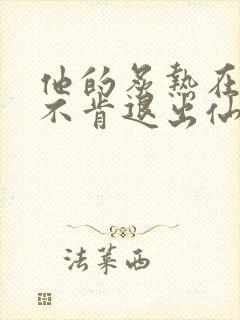 他的炙熱在
不肯退出仙
法萊西